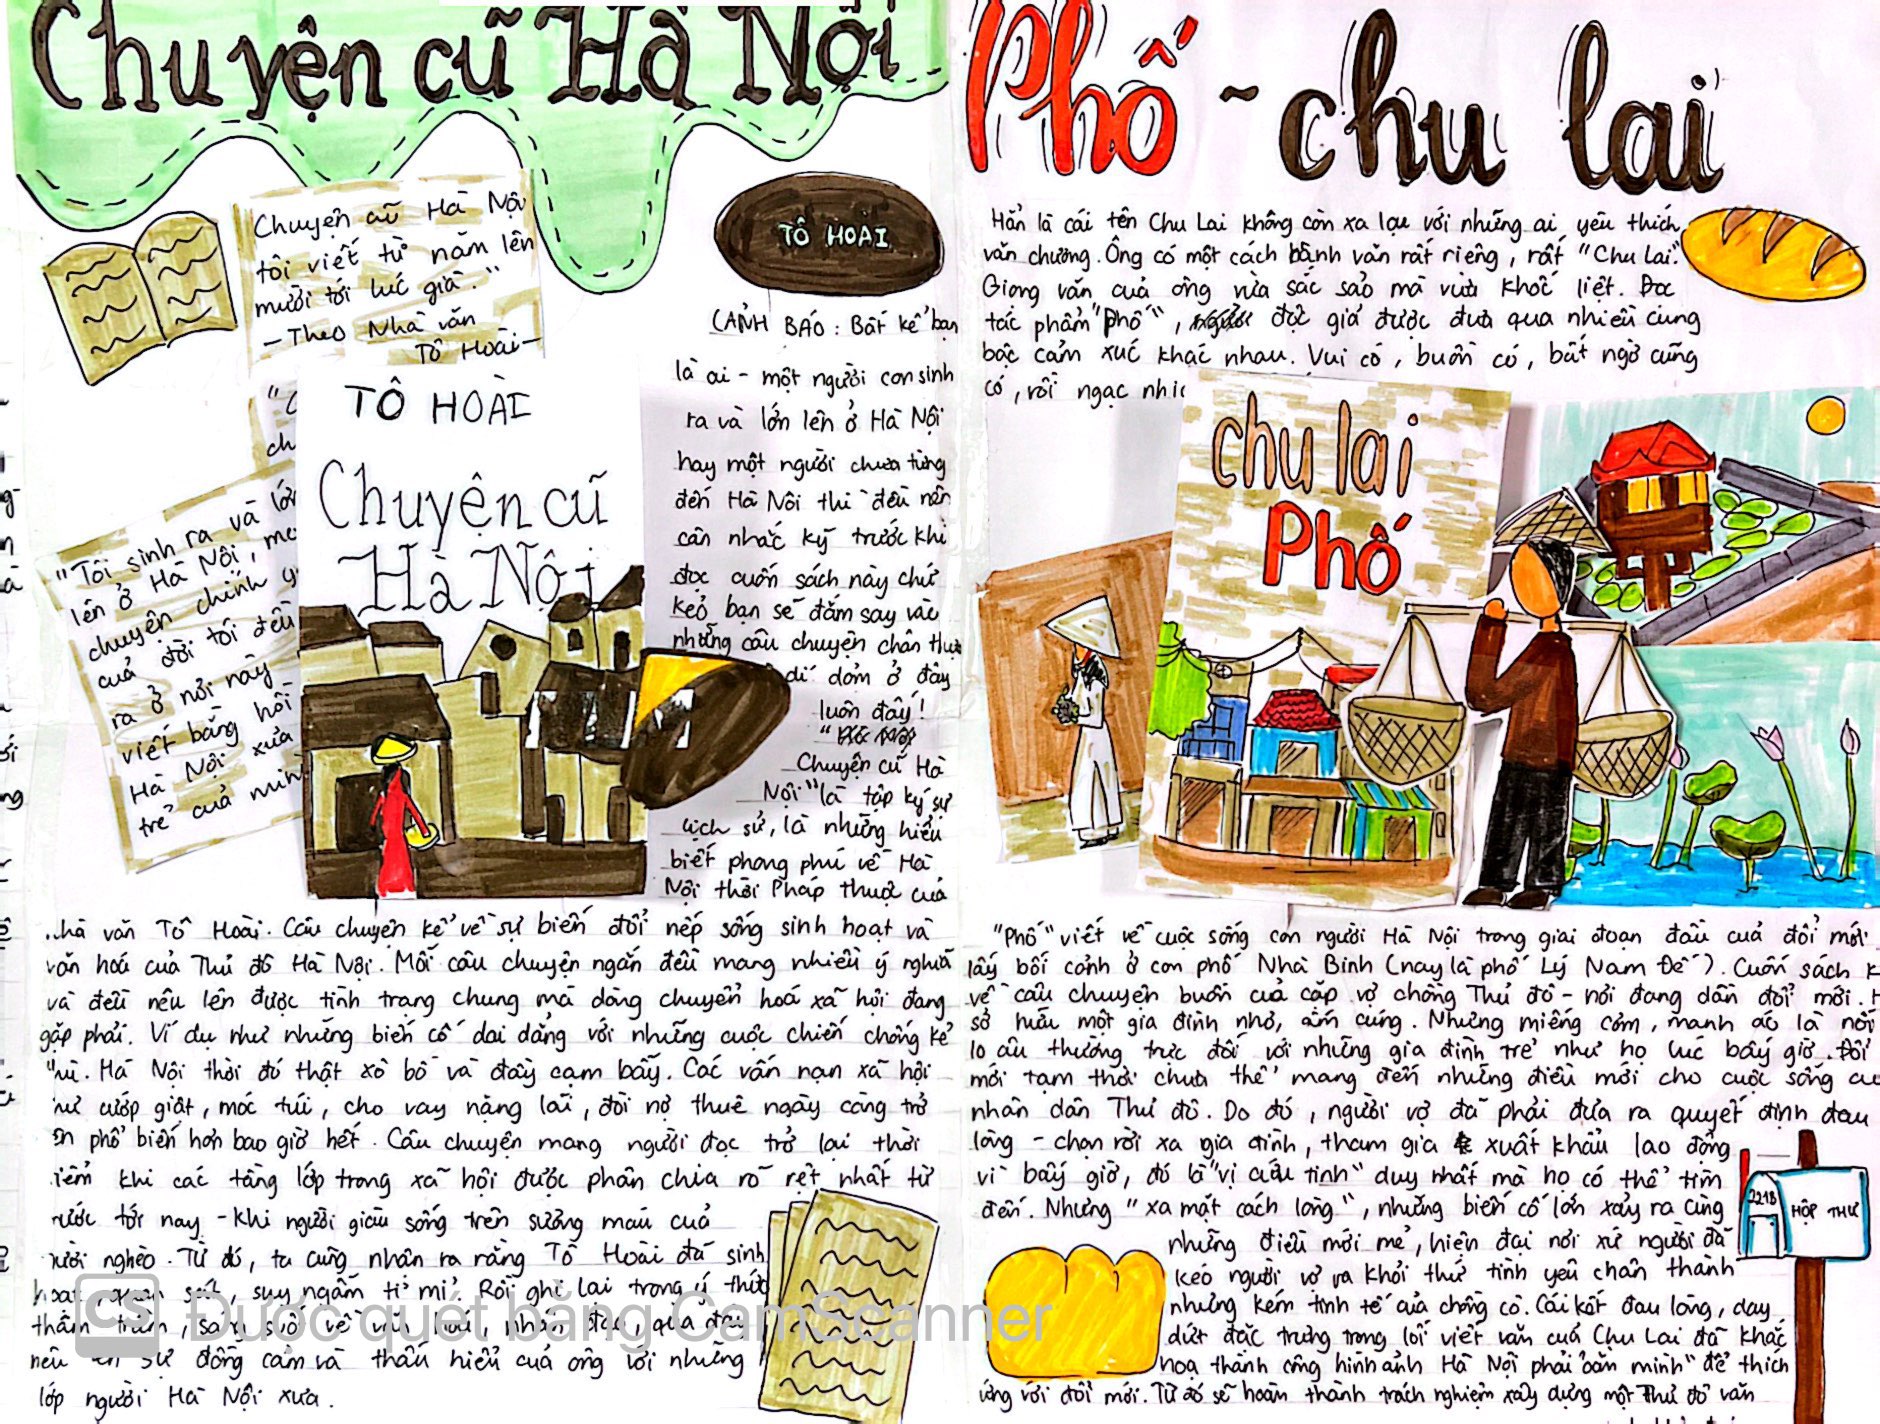 Chuyện cũ Hà Nội
Chuyện cũ Hà Nội
tôi viết từ năm lên
mười tới lúc già."
- Theo Nhà văn
Tô Hoài -
TÔ HOÀI
CẢNH BÁO: Bất kể bạn
là ai - một người con sinh
ra và lớn lên ở Hà Nội
hay một người chưa từng
đến Hà Nội thì đều nên
cân nhắc kỹ trước khi
đọc cuốn sách này chứ
kẻo bạn sẽ đắm say vào
những câu chuyện chân thực
dí dỏm ở đây
luôn đấy!
"Chuyện cũ Hà
Nội" là tập ký sự
lịch sử, là những hiểu
biết phong phú về Hà
Nội thời Pháp thuộc của
"Tôi sinh ra và lớn
lên ở Hà Nội,
chuyện chính
của đời tôi đều
ra ở nơi này
viết bằng hồi
Hà Nội xưa
trẻ của mình
TÔ HOÀI
Chuyện cũ
Hà Nội
nhà văn Tô Hoài. Câu chuyện kể về sự biến đổi nếp sống sinh hoạt và
văn hoá của Thủ đô Hà Nội. Mỗi câu chuyện ngắn đều mang nhiều ý nghĩa
và đều nêu lên được tình trạng chung mà dòng chuyển hoá xã hội đang
gặp phải. Ví dụ như những biến cố dai dẳng với những cuộc chiến chống kẻ
Hà Nội thời đó thật xô bồ và đầy cạm bẫy. Các vấn nạn xã hội
như cướp giật, móc túi, cho vay nặng lãi, đòi nợ thuê ngày càng trở
ên phổ biến hơn bao giờ hết. Câu chuyện mang người đọc trở lại thời
điểm khi các tầng lớp trong xã hội được phân chia rõ rệt nhất từ
trước tới nay - khi người giàu sống trên sương máu của
người nghèo. Từ đó, ta cũng nhận ra rằng Tô Hoài đã sinh
hoạt, quan sát, suy ngẫm tỉ mỉ. Rồi ghi lại trong ý thức
thâm trầm, sâu sắc về văn hoá, nhân qua đây
nêu lên sự đồng cảm và thấu hiểu của ông với những
lớp người Hà Nội xưa.
Phố - chu lai
Hẳn là cái tên Chu Lai không còn xa lạ với những ai yêu thích
văn chương. Ông có một cách hành văn rất riêng, rất "Chu Lai".
Giọng văn của ông vừa sắc sảo mà vừa khốc liệt. Đọc
tác phẩm "Phố", độc giả được đưa qua nhiều cung
bậc cảm xúc khác nhau. Vui có, buồn có, bất ngờ cũng
có, rồi ngạc nhiê
chu lai
Phố
"Phố" viết về cuộc sống con người Hà Nội trong giai đoạn đầu của đổi mới
lấy bối cảnh ở con phố Nhà Binh (nay là phố Lý Nam Đế). Cuốn sách k
về câu chuyện buồn của cặp vợ chồng Thủ đô - nơi đang dần đổi mới. H
sở hữu một gia đình nhỏ, ấm cúng. Nhưng miếng cơm, manh áo là nỗi
lo âu thường trực đối với những gia đình trẻ như họ lúc bấy giờ. Đổi
mới tạm thời chưa thể mang đến những điều mới cho cuộc sống củ
nhân dân Thủ đô. Do đó, người vợ đã phải đưa ra quyết định đau
lòng - chọn rời xa gia đình, tham gia xuất khẩu lao động
vì bấy giờ, đó là "vị cứu tinh" duy nhất mà họ có thể tìm
đến. Nhưng "xa mặt cách lòng", những biến cố lớn xảy ra cùng
những điều mới mẻ, hiện đại nơi xứ người đã
kéo người vợ ra khỏi thứ tình yêu chân thành
nhưng kém tinh tế của chồng cô. Cái kết đau lòng, day
dứt đặc trưng trong lối viết văn của Chu Lai đã khắc
hoạ thành công hình ảnh Hà Nội phải "oằn mình" để thích
ứng với đổi mới. Từ đó sẽ hoàn thành trách nghiệm xây dựng một Thủ đô văn
221B
HỘP THƯ
CS Được quét bằng CamScanner